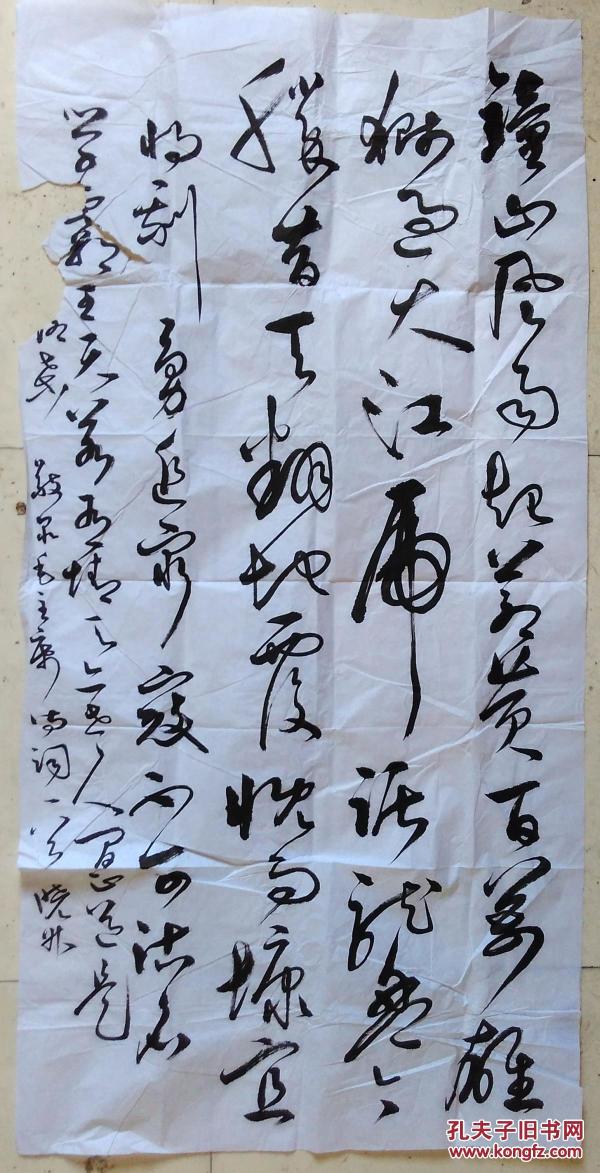 鐘山风雨起蒼黄百萬雄
師過大江虎踞龍盤今
勝昔天翻地覆慨而慷宜
将剩勇追窮寇不可沽名
学霸王天若有情天亦老人間正道是
滄桑 敬录毛主席詩词一首 晓
孔夫子旧书网
www.kongfz.com